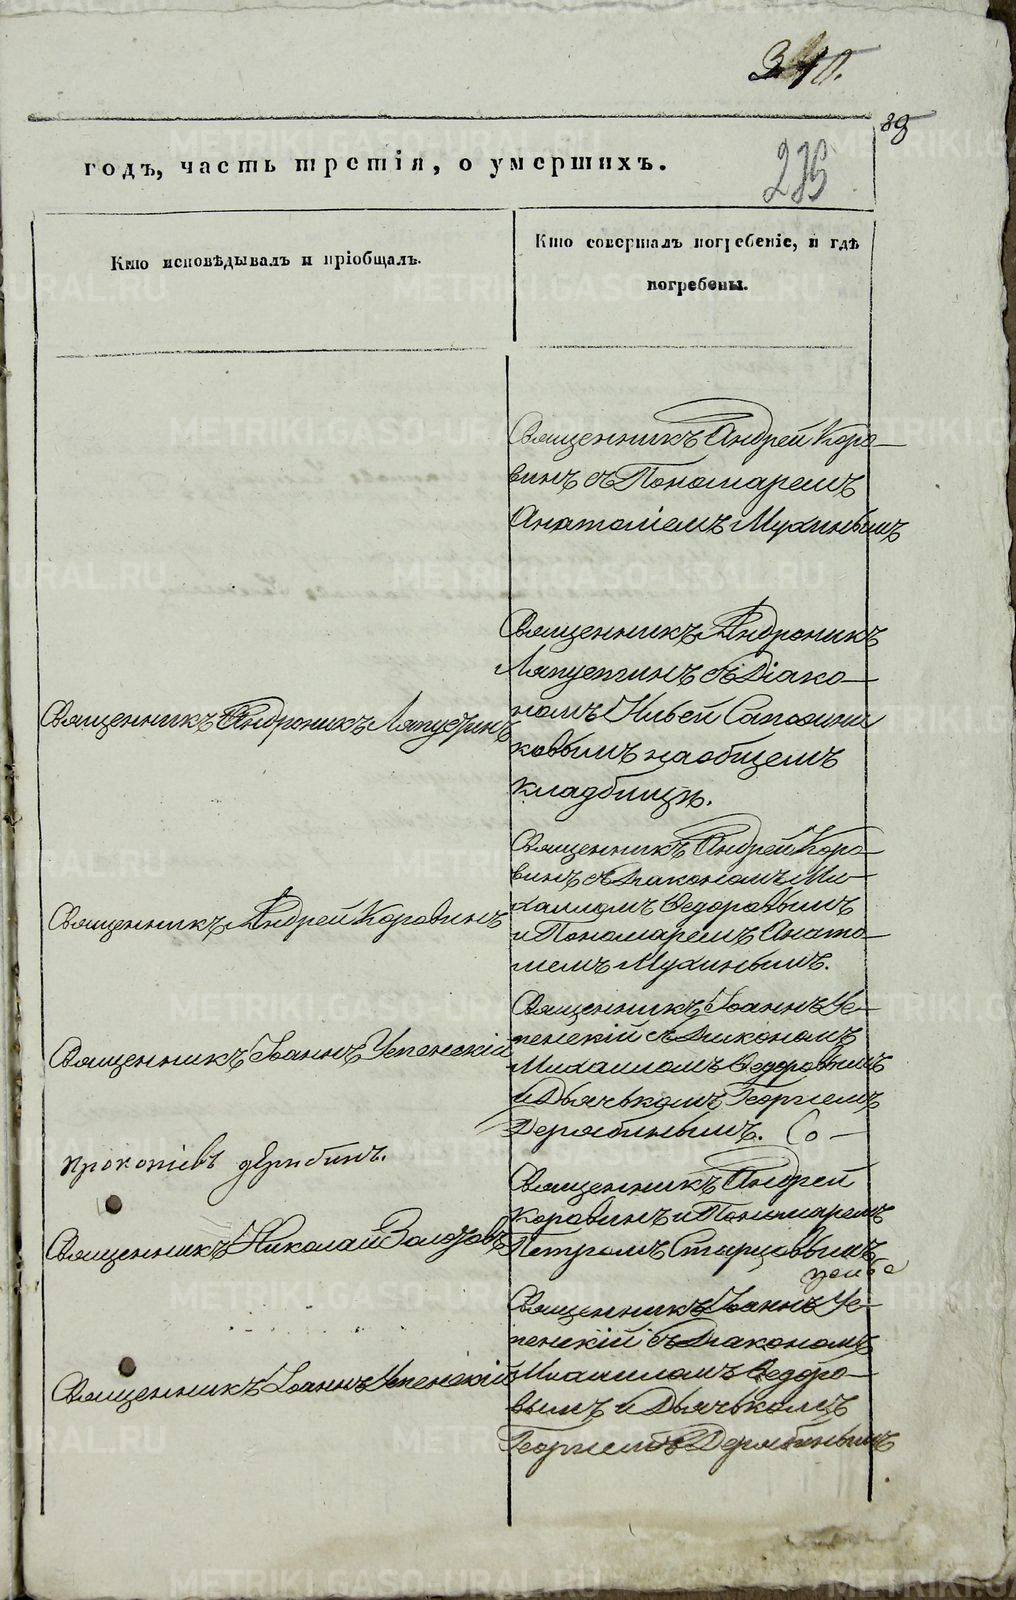 89
235
годъ, часть третія, о умершихъ.
Кто исповѣдывалъ и пріобщалъ.
Кто совершалъ погребеніе, и гдѣ
погребены.
Священникъ Андрей Коро-
винъ съ Пономаремъ
Анатоліемъ Мухинымъ
Священникъ Андроникъ Ляпустинъ
Священникъ Андроникъ
Ляпустинъ съ Діако-
номъ Ильей Сапожни
ковымъ на общемъ
кладбищѣ.
Священникъ Андрей Коровинъ
Священникъ Андрей Коро-
винъ съ Діакономъ Ми-
хаиломъ Ѳедоровымъ
и Пономаремъ Анато-
лiемъ Мухинымъ.
Священникъ Іоаннъ Успенскій
Священникъ Іоаннъ Ус-
пенскій съ Діакономъ
Михаиломъ Ѳедоровымъ
и Дьячькомъ Георгіемъ
Дерябинымъ.
прокопіевъ дѣрябинъ.
Священникъ Николай Золотовъ
Священникъ Андрей
Коровинъ и Пономаремъ
Петромъ Старцовымъ
Священникъ Іоаннъ Успенскій
Священникъ Іоаннъ Ус-
пенскій съ Діакономъ
Михаиломъ Ѳедоро-
вымъ и Дьячькомъ
Георгіемъ Дерябинымъ
METRIKI.GASO-URAL.RU